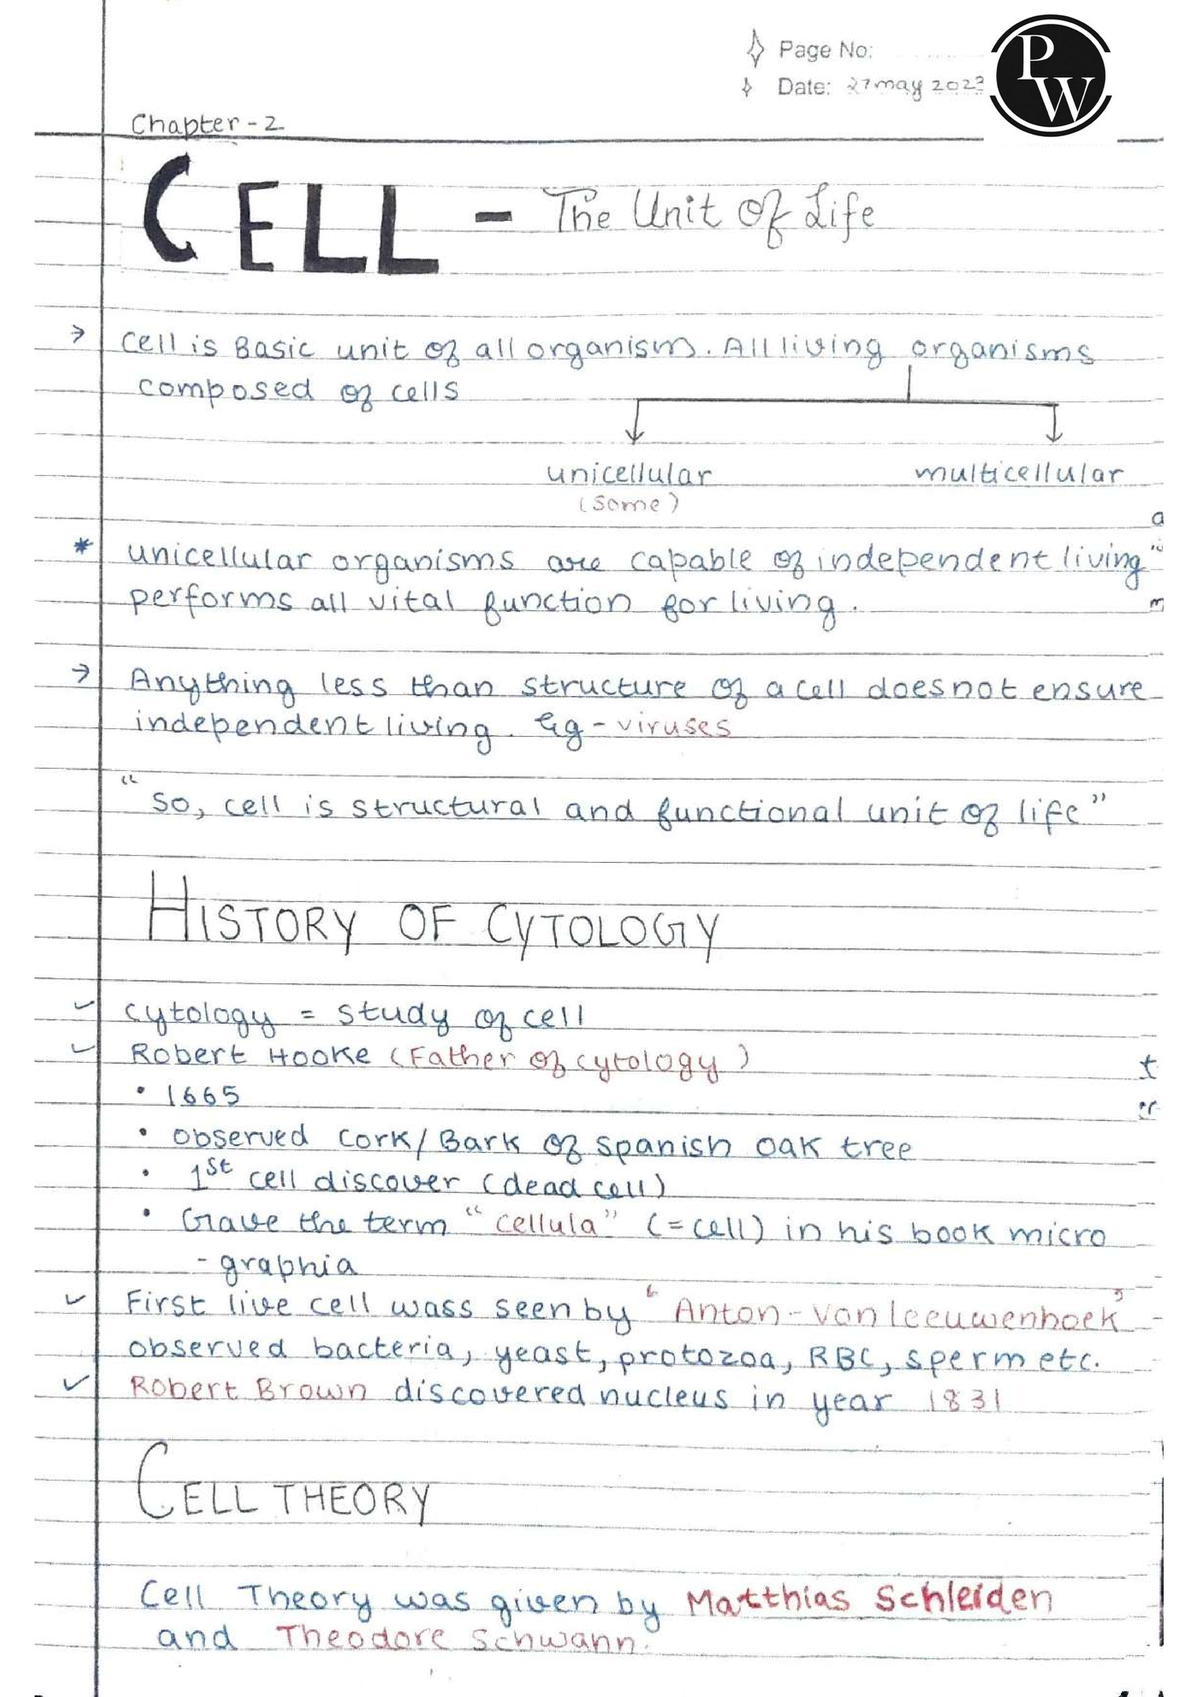 Page No:
Date: 27 may 2023
PW
Chapter - 2
CELL - The Unit Of Life
→ Cell is Basic unit of all organism. All living organisms
composed of cells
unicellular multicellular
(some)
a
* unicellular organisms are capable of independent living"
performs all vital function for living.
m
→ Anything less than structure of a cell does not ensure
independent living. Eg - viruses
"So, cell is structural and functional unit of life"
HISTORY OF CYTOLOGY
✓ cytology = study of cell
✓ Robert Hooke (Father of cytology)
t
• 1665
er
• observed cork/Bark of spanish oak tree
• 1st cell discover (dead cell)
• Gave the term "cellula" (= cell) in his book micro
- graphia
✓ First live cell wass seen by "Anton-von leeuwenhoek"
observed bacteria, yeast, protozoa, RBC, sperm etc.
✓ Robert Brown discovered nucleus in year 1831
CELL THEORY
Cell Theory was given by Matthias Schleiden
and Theodore Schwann.